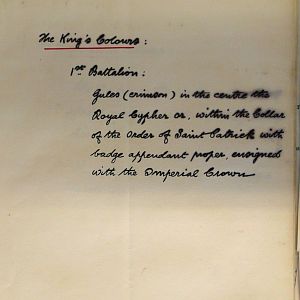 The King's Colours:
1st Battalion:
Gules (crimson) in the centre the
Royal Cypher or, within the Collar
of the Order of Saint Patrick with
badge appendant proper, ensigned
with the Imperial Crown